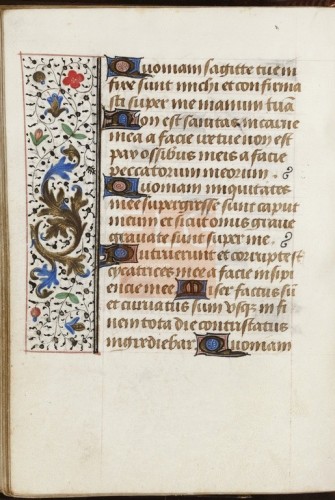 Quoniam sagitte tue in
fixe sunt michi et confirma
sti super me manum tuā
Non est sanitas in carne
mea a facie ire tue non est
pax ossibus meis a facie
peccatorum meorum.
Quoniam iniquitates
mee supergresse sunt caput
meum et sicut onus graue
grauate sunt super me.
Putruerunt et corrupte st̄
cycatrices mee a facie insipi
encie mee Miser factus sū
et curuatus sum vsq; in fi
nem tota die contristatus
ingrediebar. Quoniam